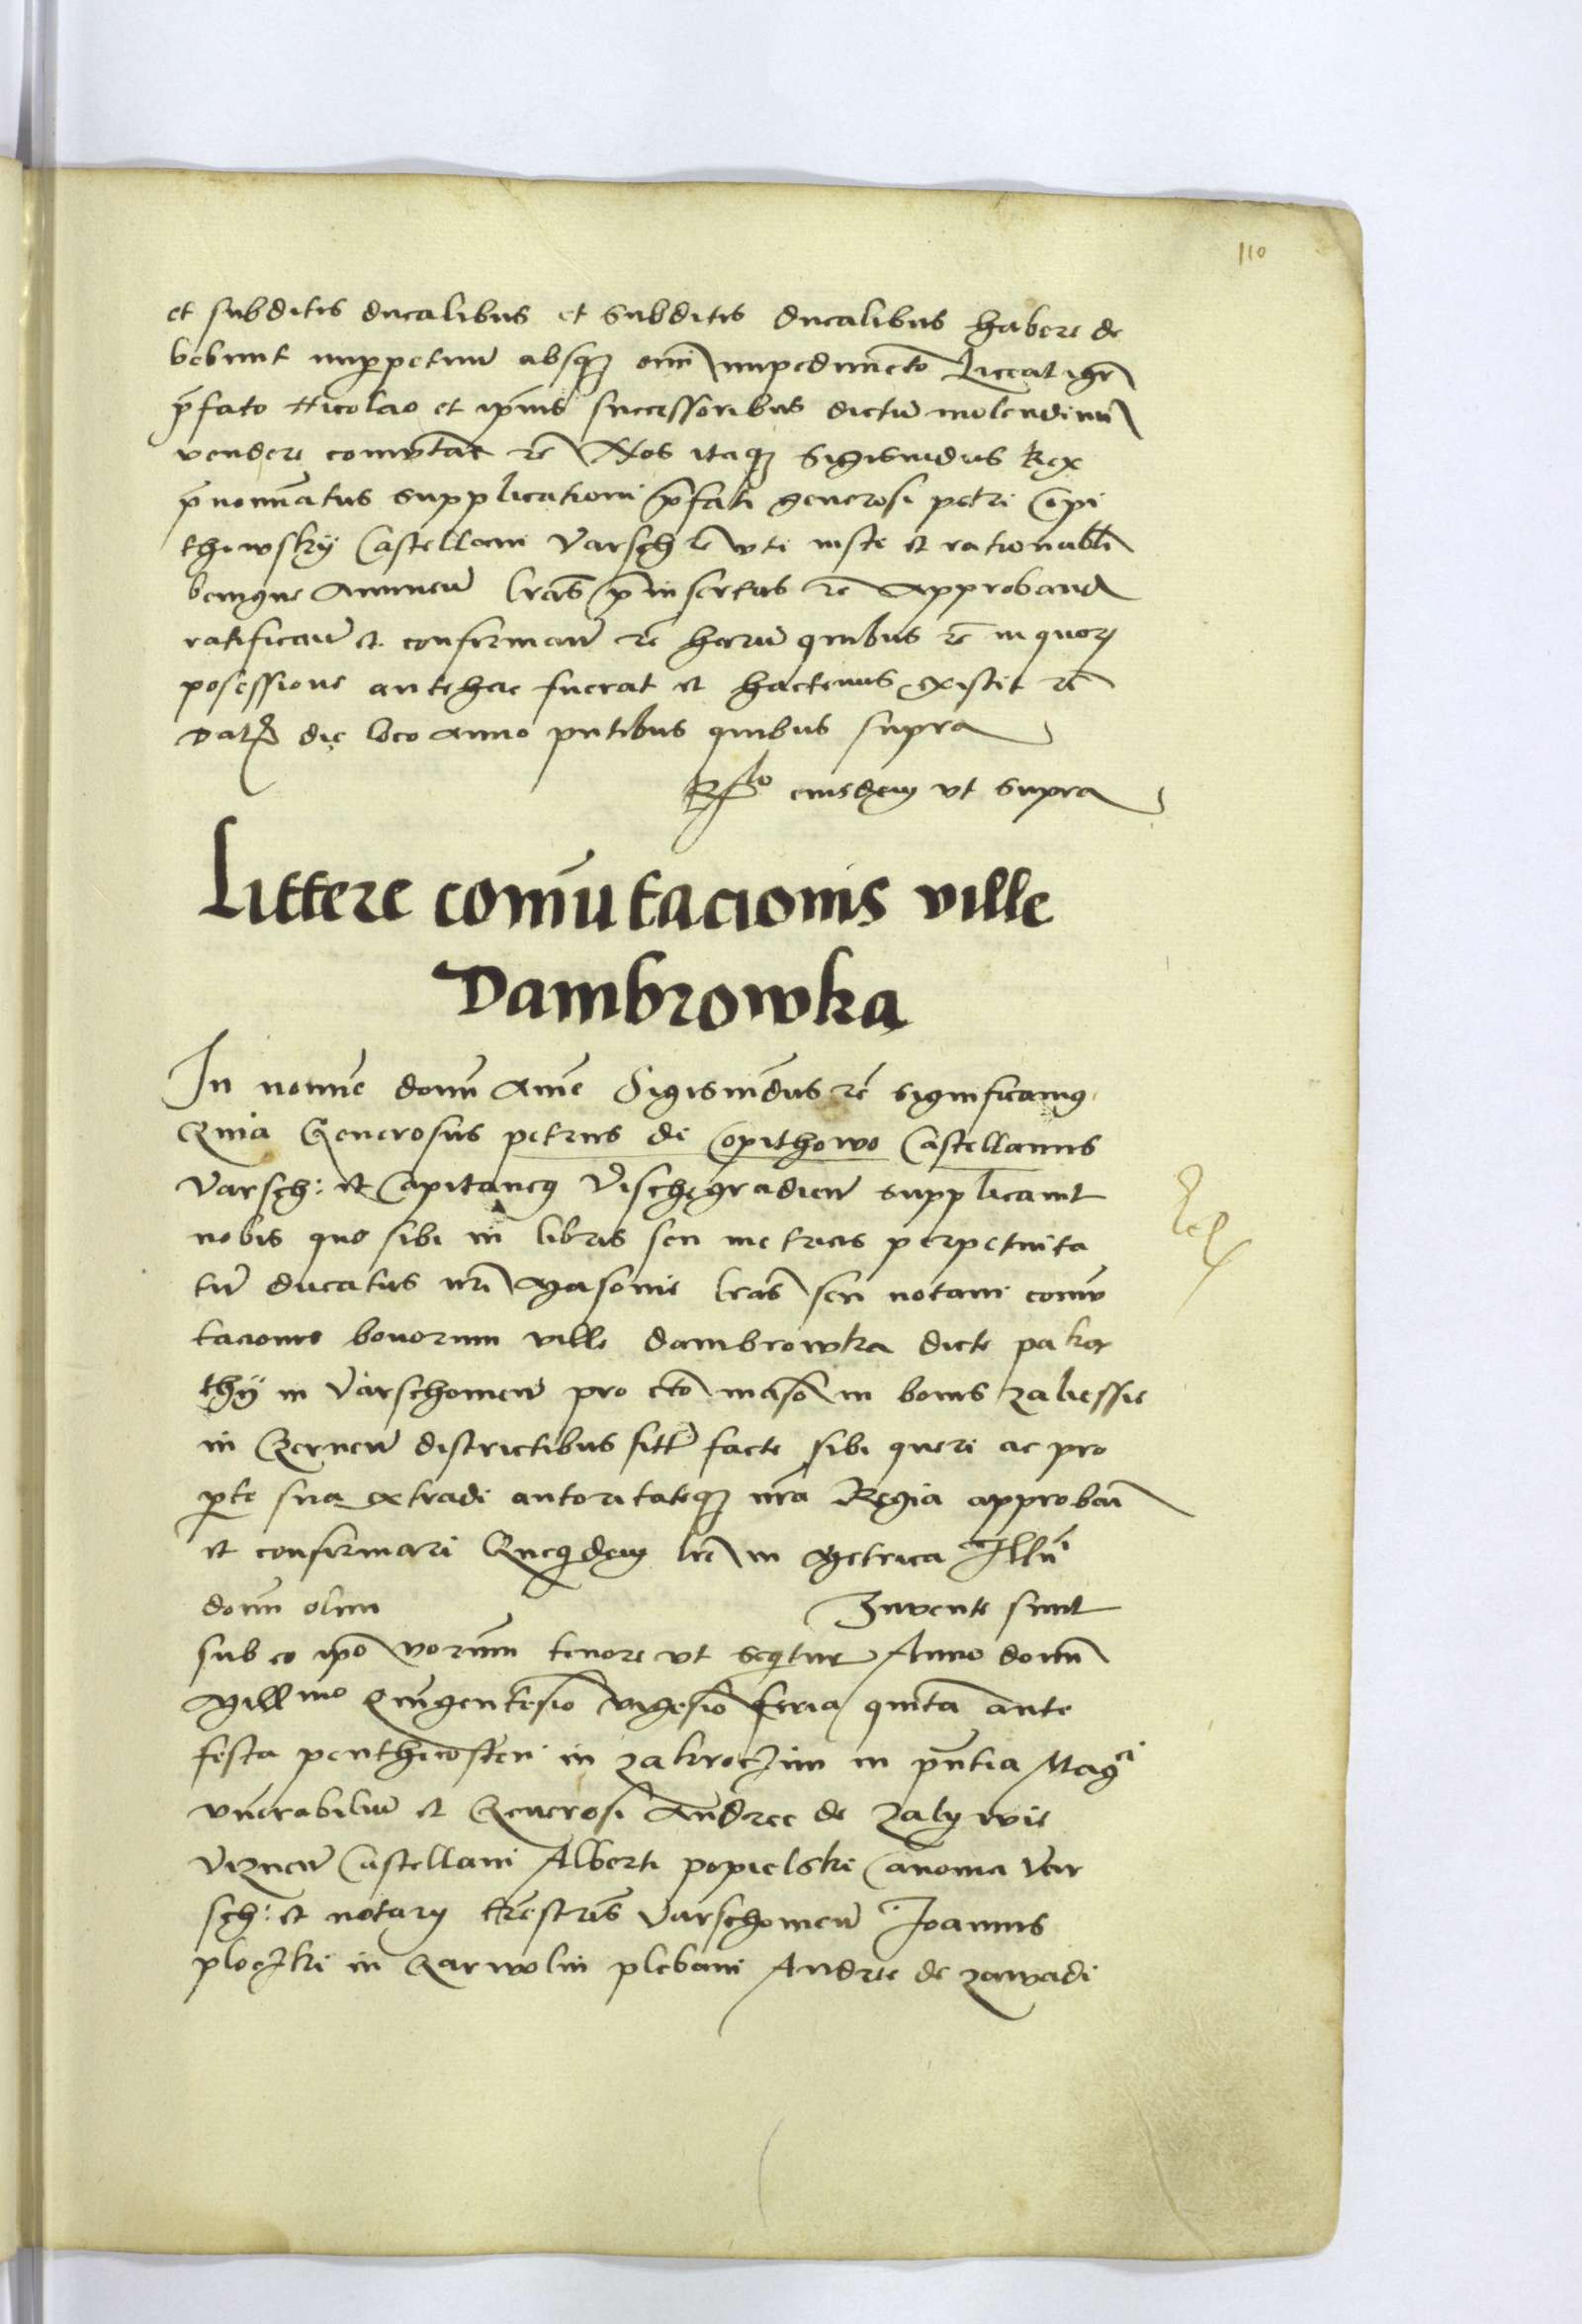 110
et subditis ducalibus et subditis ducalibus habere de
bebunt imperpetuum absque omni impedimento Liceat igitur
prefato Nicolao et ipsius successoribus dictum molendinum
vendere comutare etc Nos itaque Sigismundus Rex
prenominatus supplicationi prefati generosi petri Copi
thowsky Castellani Varsch uti iuste et rationabili
benigne Annuen lras preinsertas etc Approband
ratifican et confirman etc harum quibus etc in quorum
posessione antehac fuerat et hactenus existit etc
Dat die loco anno presentibus quibus supra
Rlo eiusdem ut supra
Littere comutacionis ville
Dambrowka
In nomine domini Amen Sigismundus etc significamus
Quia Generosus petrus de Copithowo Castellanus
Varsch: et Capitaneus Vischegradien supplicavit
nobis quo sibi in libris seu metricis perpetuita
tum ducatus nri Masovie lras seu notam comu
tacionis bonorum ville dambrowka dicte paka
thy in Varschovien pro mansis in bonis zaliessie
in Czernen districtibus sitis facte sibi queri ac pro
parte sua extradi autoritateque nra Regia approbari
et confirmari Quequidem lre in Metrica Illmi
domini olim Invente sunt
sub eo ipso verorum tenore ut sequitur Anno domini
Millmo Quingentesimo vigesimo feria quinta ante
festa penthecosten in zakroczim in presentia Magci
venerabilium et Generosi Andree de Zalywie
Viznen Castellani Alberti popielski Canonici Var
sch: et notarii terrestris Varschovien Joannis
ploczki in Garwolin plebani Andree de zawadi